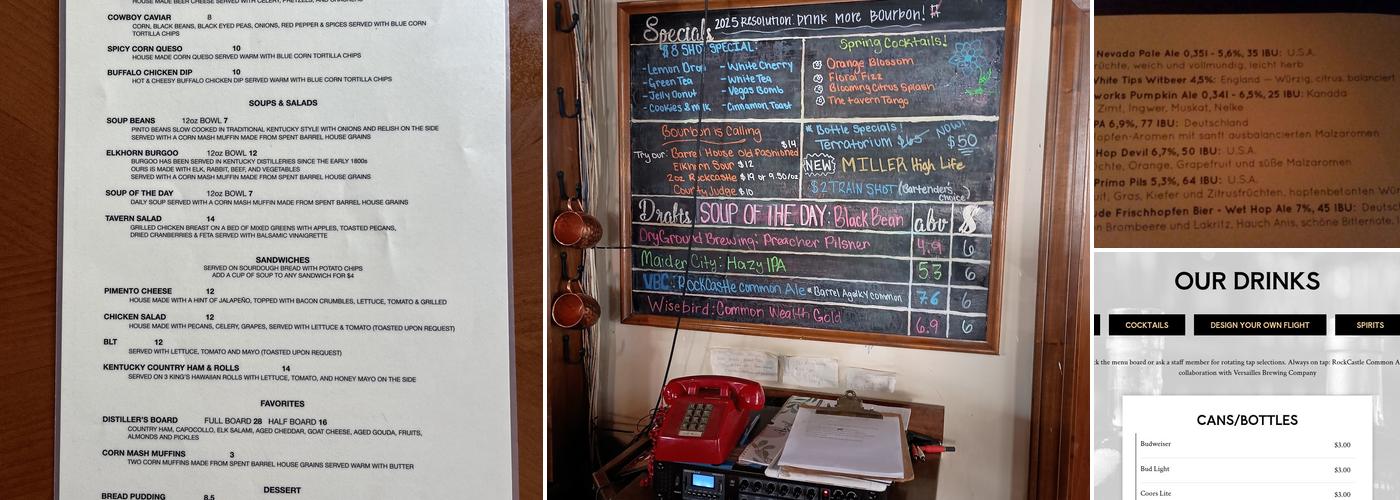 HOUSE MADE BEER CHEESE SERVED WITH CELERY, PRETZELS, AND CRACKERS
COWBOY CAVIAR 8
CORN, BLACK BEANS, BLACK EYED PEAS, ONIONS, RED PEPPER & SPICES SERVED WITH BLUE CORN
TORTILLA CHIPS
SPICY CORN QUESO 10
HOUSE MADE CORN QUESO SERVED WARM WITH BLUE CORN TORTILLA CHIPS
BUFFALO CHICKEN DIP 10
HOT & CHEESY BUFFALO CHICKEN DIP SERVED WARM WITH BLUE CORN TORTILLA CHIPS
SOUPS & SALADS
SOUP BEANS 12oz BOWL 7
PINTO BEANS SLOW COOKED IN TRADITIONAL KENTUCKY STYLE WITH ONIONS AND RELISH ON THE SIDE
SERVED WITH A CORN MASH MUFFIN MADE FROM SPENT BARREL HOUSE GRAINS
ELKHORN BURGOO 12oz BOWL 12
BURGOO HAS BEEN SERVED IN KENTUCKY DISTILLERIES SINCE THE EARLY 1800s
OURS IS MADE WITH ELK, RABBIT, BEEF, AND VEGETABLES
SERVED WITH A CORN MASH MUFFIN MADE FROM SPENT BARREL HOUSE GRAINS
SOUP OF THE DAY 12oz BOWL 7
DAILY SOUP SERVED WITH A CORN MASH MUFFIN MADE FROM SPENT BARREL HOUSE GRAINS
TAVERN SALAD 14
GRILLED CHICKEN BREAST ON A BED OF MIXED GREENS WITH APPLES, TOASTED PECANS,
DRIED CRANBERRIES & FETA SERVED WITH BALSAMIC VINAIGRETTE
SANDWICHES
SERVED ON SOURDOUGH BREAD WITH POTATO CHIPS
ADD A CUP OF SOUP TO ANY SANDWICH FOR $4
PIMENTO CHEESE 12
HOUSE MADE WITH A HINT OF JALAPEÑO, TOPPED WITH BACON CRUMBLES, LETTUCE, TOMATO & GRILLED
CHICKEN SALAD 12
HOUSE MADE WITH PECANS, CELERY, GRAPES, SERVED WITH LETTUCE & TOMATO (TOASTED UPON REQUEST)
BLT 12
SERVED WITH LETTUCE, TOMATO AND MAYO (TOASTED UPON REQUEST)
KENTUCKY COUNTRY HAM & ROLLS 14
SERVED ON 3 KING'S HAWAIIAN ROLLS WITH LETTUCE, TOMATO, AND HONEY MAYO ON THE SIDE
FAVORITES
DISTILLER'S BOARD FULL BOARD 28 HALF BOARD 16
COUNTRY HAM, CAPOCOLLO, ELK SALAMI, AGED CHEDDAR, GOAT CHEESE, AGED GOUDA, FRUITS,
ALMONDS AND PICKLES
CORN MASH MUFFINS 3
TWO CORN MUFFINS MADE FROM SPENT BARREL HOUSE GRAINS SERVED WARM WITH BUTTER
DESSERT
BREAD PUDDING 8.5
Specials 2025 Resolution: Drink More Bourbon!
$8 SHOT SPECIAL:
-Lemon Drop -White Cherry
-Green Tea -White Tea
-Jelly Donut -Vegas Bomb
-Cookies & milk -Cinnamon Toast
Spring Cocktails!
Orange Blossom
Floral Fizz
Blooming Citrus Splash
The tavern Tango
Bourbon is Calling
$14
Try our: Barrel House old fashioned
Elkhorn Sour $12
2oz Rockcastle $19 or 9.50/oz
County Judge $10
* Bottle Specials! NOW!
Terratorium $65 $50
NEW! MILLER High Life
$2 TRAIN SHOT (Bartender's
choice)
Drafts SOUP OF THE DAY: Black Bean abv $
DryGround Brewing: Preacher Pilsner 4.9 6
Maiden City: Hazy IPA 5.3 6
VBC: RockCastle common Ale *Barrel Aged KY common 7.6 6
Wisebird: Common Wealth Gold 6.9 6
Nevada Pale Ale 0,35l - 5,6%, 35 IBU: U.S.A.
rüchte, weich und vollmundig, leicht herb
White Tips Witbeer 4,5%: England – Würzig, citrus, balanciert
works Pumpkin Ale 0,34l - 6,5%, 25 IBU: Kanada
Zimt, Ingwer, Muskat, Nelke
PA 6,9%, 77 IBU: Deutschland
opfen-Aromen mit sanft ausbalancierten Malzaromen
Hop Devil 6,7%, 50 IBU: U.S.A.
üchte, Orange, Grapefruit und süße Malzaromen
Primo Pils 5,3%, 64 IBU: U.S.A.
uit, Gras, Kiefer und Zitrusfrüchten, hopfenbetonten
de Frischhopfen Bier - Wet Hop Ale 7%, 45 IBU: Deutsc
n Brombeere und Lakritz, Hauch Anis, schöne Bitternote
OUR DRINKS
COCKTAILS DESIGN YOUR OWN FLIGHT SPIRITS
ck the menu board or ask a staff member for rotating tap selections. Always on tap: RockCastle Common A
collaboration with Versailles Brewing Company
CANS/BOTTLES
Budweiser $3.00
Bud Light $3.00
Coors Lite $3.00